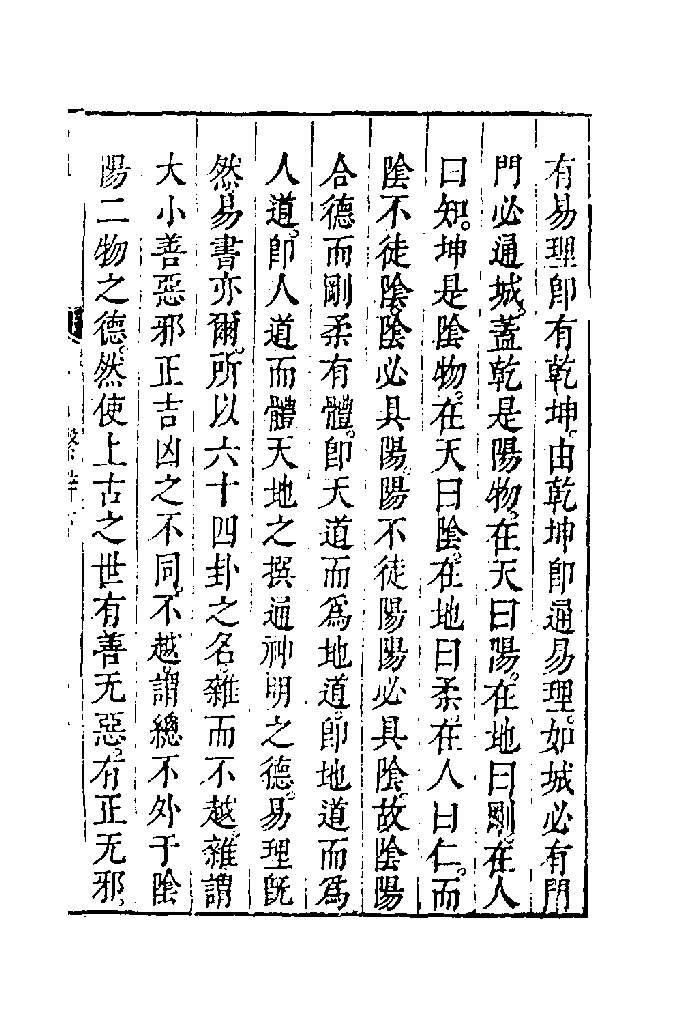 有易理卽有乾坤。由乾坤卽通易理。如城必有門
門必通城。葢乾是陽物。在天曰陽。在地曰剛。在人
曰知。坤是陰物。在天曰陰。在地曰柔。在人曰仁。而
陰不徒陰。陰必具陽。陽不徒陽。陽必具陰。故陰陽
合德而剛柔有體。卽天道而爲地道。卽地道而爲
人道。卽人道而體天地之撰通神明之德。易理旣
然。易書亦爾。所以六十四卦之名。雜而不越。雜謂
大小善惡邪正吉凶之不同。不越謂總不外于陰
陽二物之德。然使上古之世有善无惡。有正无邪。